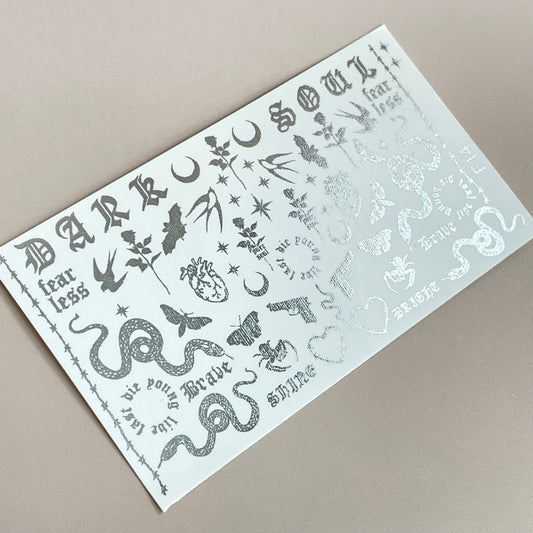 DARK SOUL
fear
less
fear
less
live fast die young
Brave
SHINE
live fast die young
Brave
BRIGHT
F14